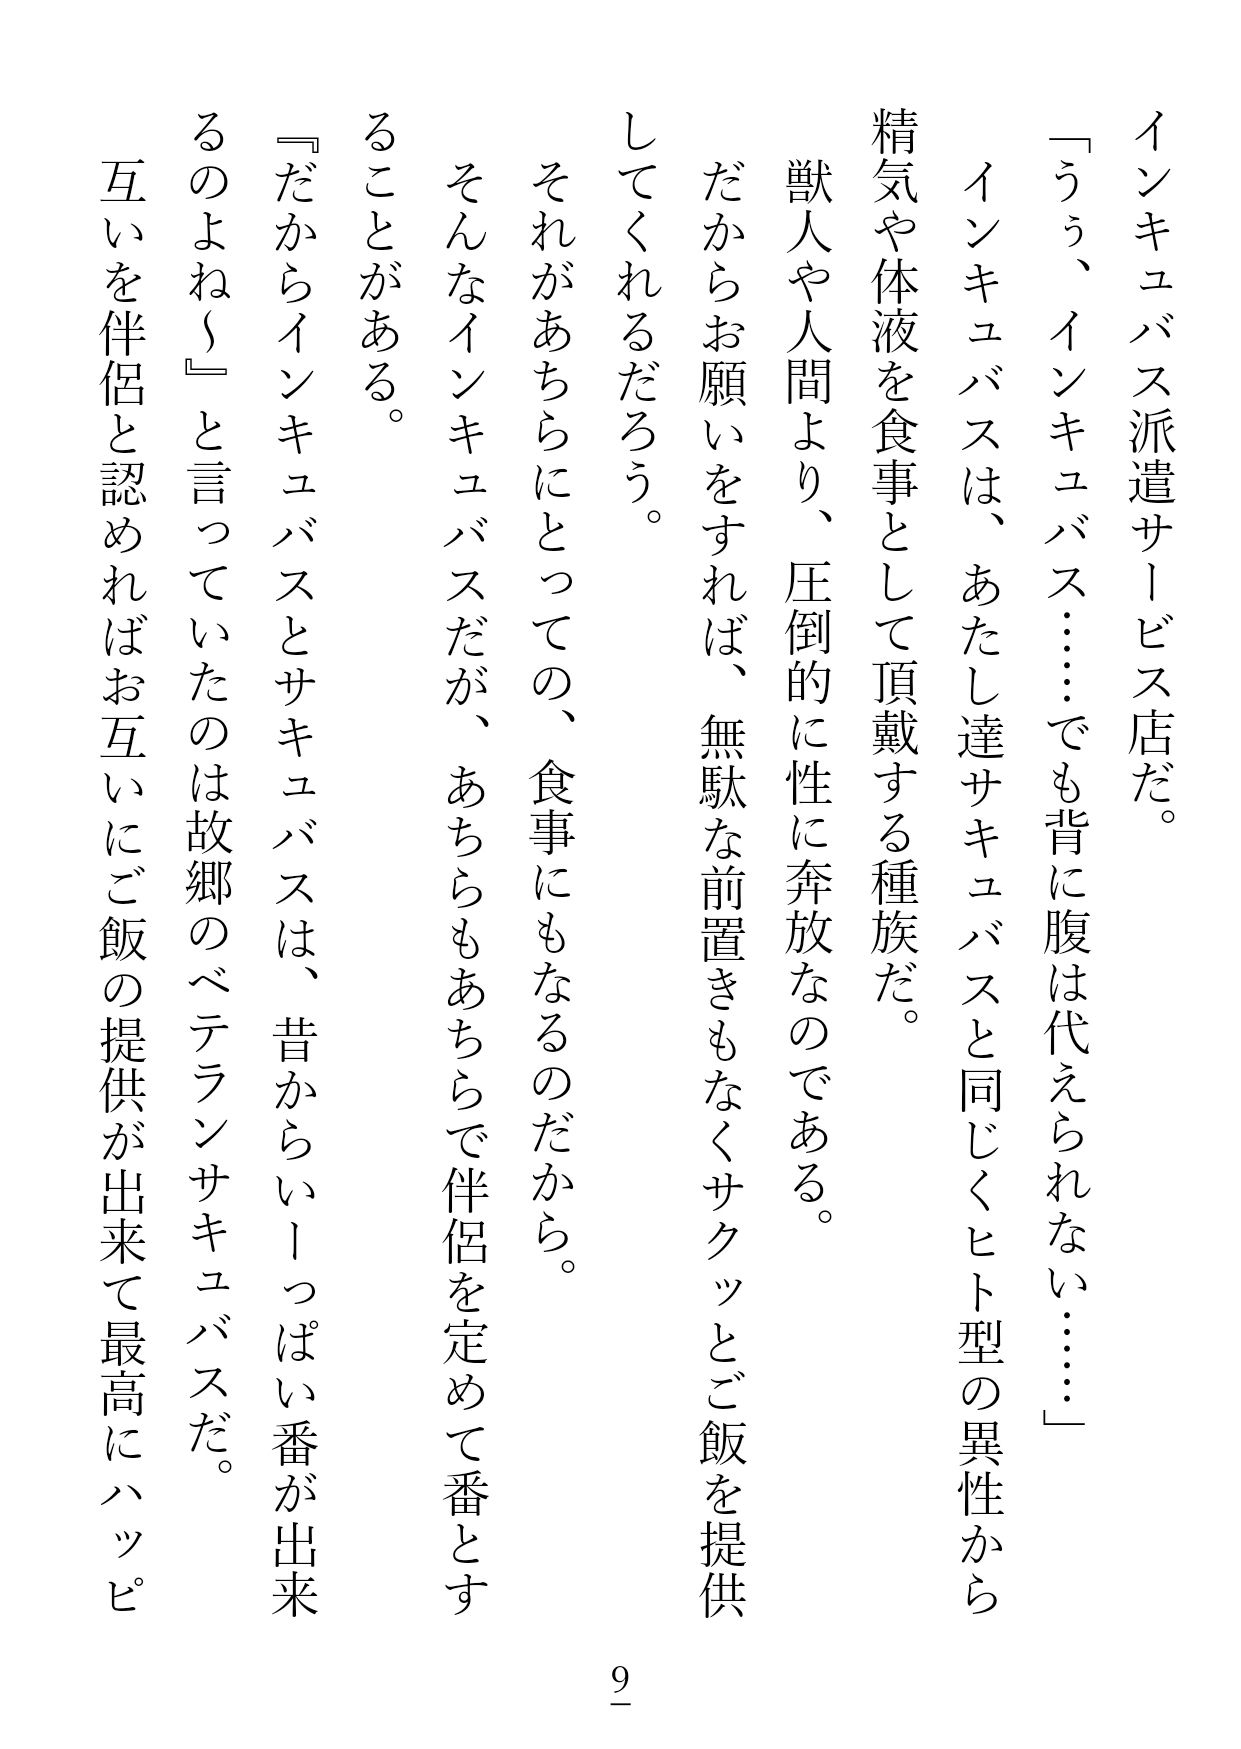 インキュバス派遣サービス店だ。
「うぅ、インキュバス……でも背に腹は代えられない……」
　インキュバスは、あたし達サキュバスと同じくヒト型の異性から
精気や体液を食事として頂戴する種族だ。
　獣人や人間より、圧倒的に性に奔放なのである。
　だからお願いをすれば、無駄な前置きもなくサクッとご飯を提供
してくれるだろう。
　それがあちらにとっての、食事にもなるのだから。
　そんなインキュバスだが、あちらもあちらで伴侶を定めて番とす
ることがある。
『だからインキュバスとサキュバスは、昔からいーっぱい番が出来
るのよね～』と言っていたのは故郷のベテランサキュバスだ。
　互いを伴侶と認めればお互いにご飯の提供が出来て最高にハッピ
9